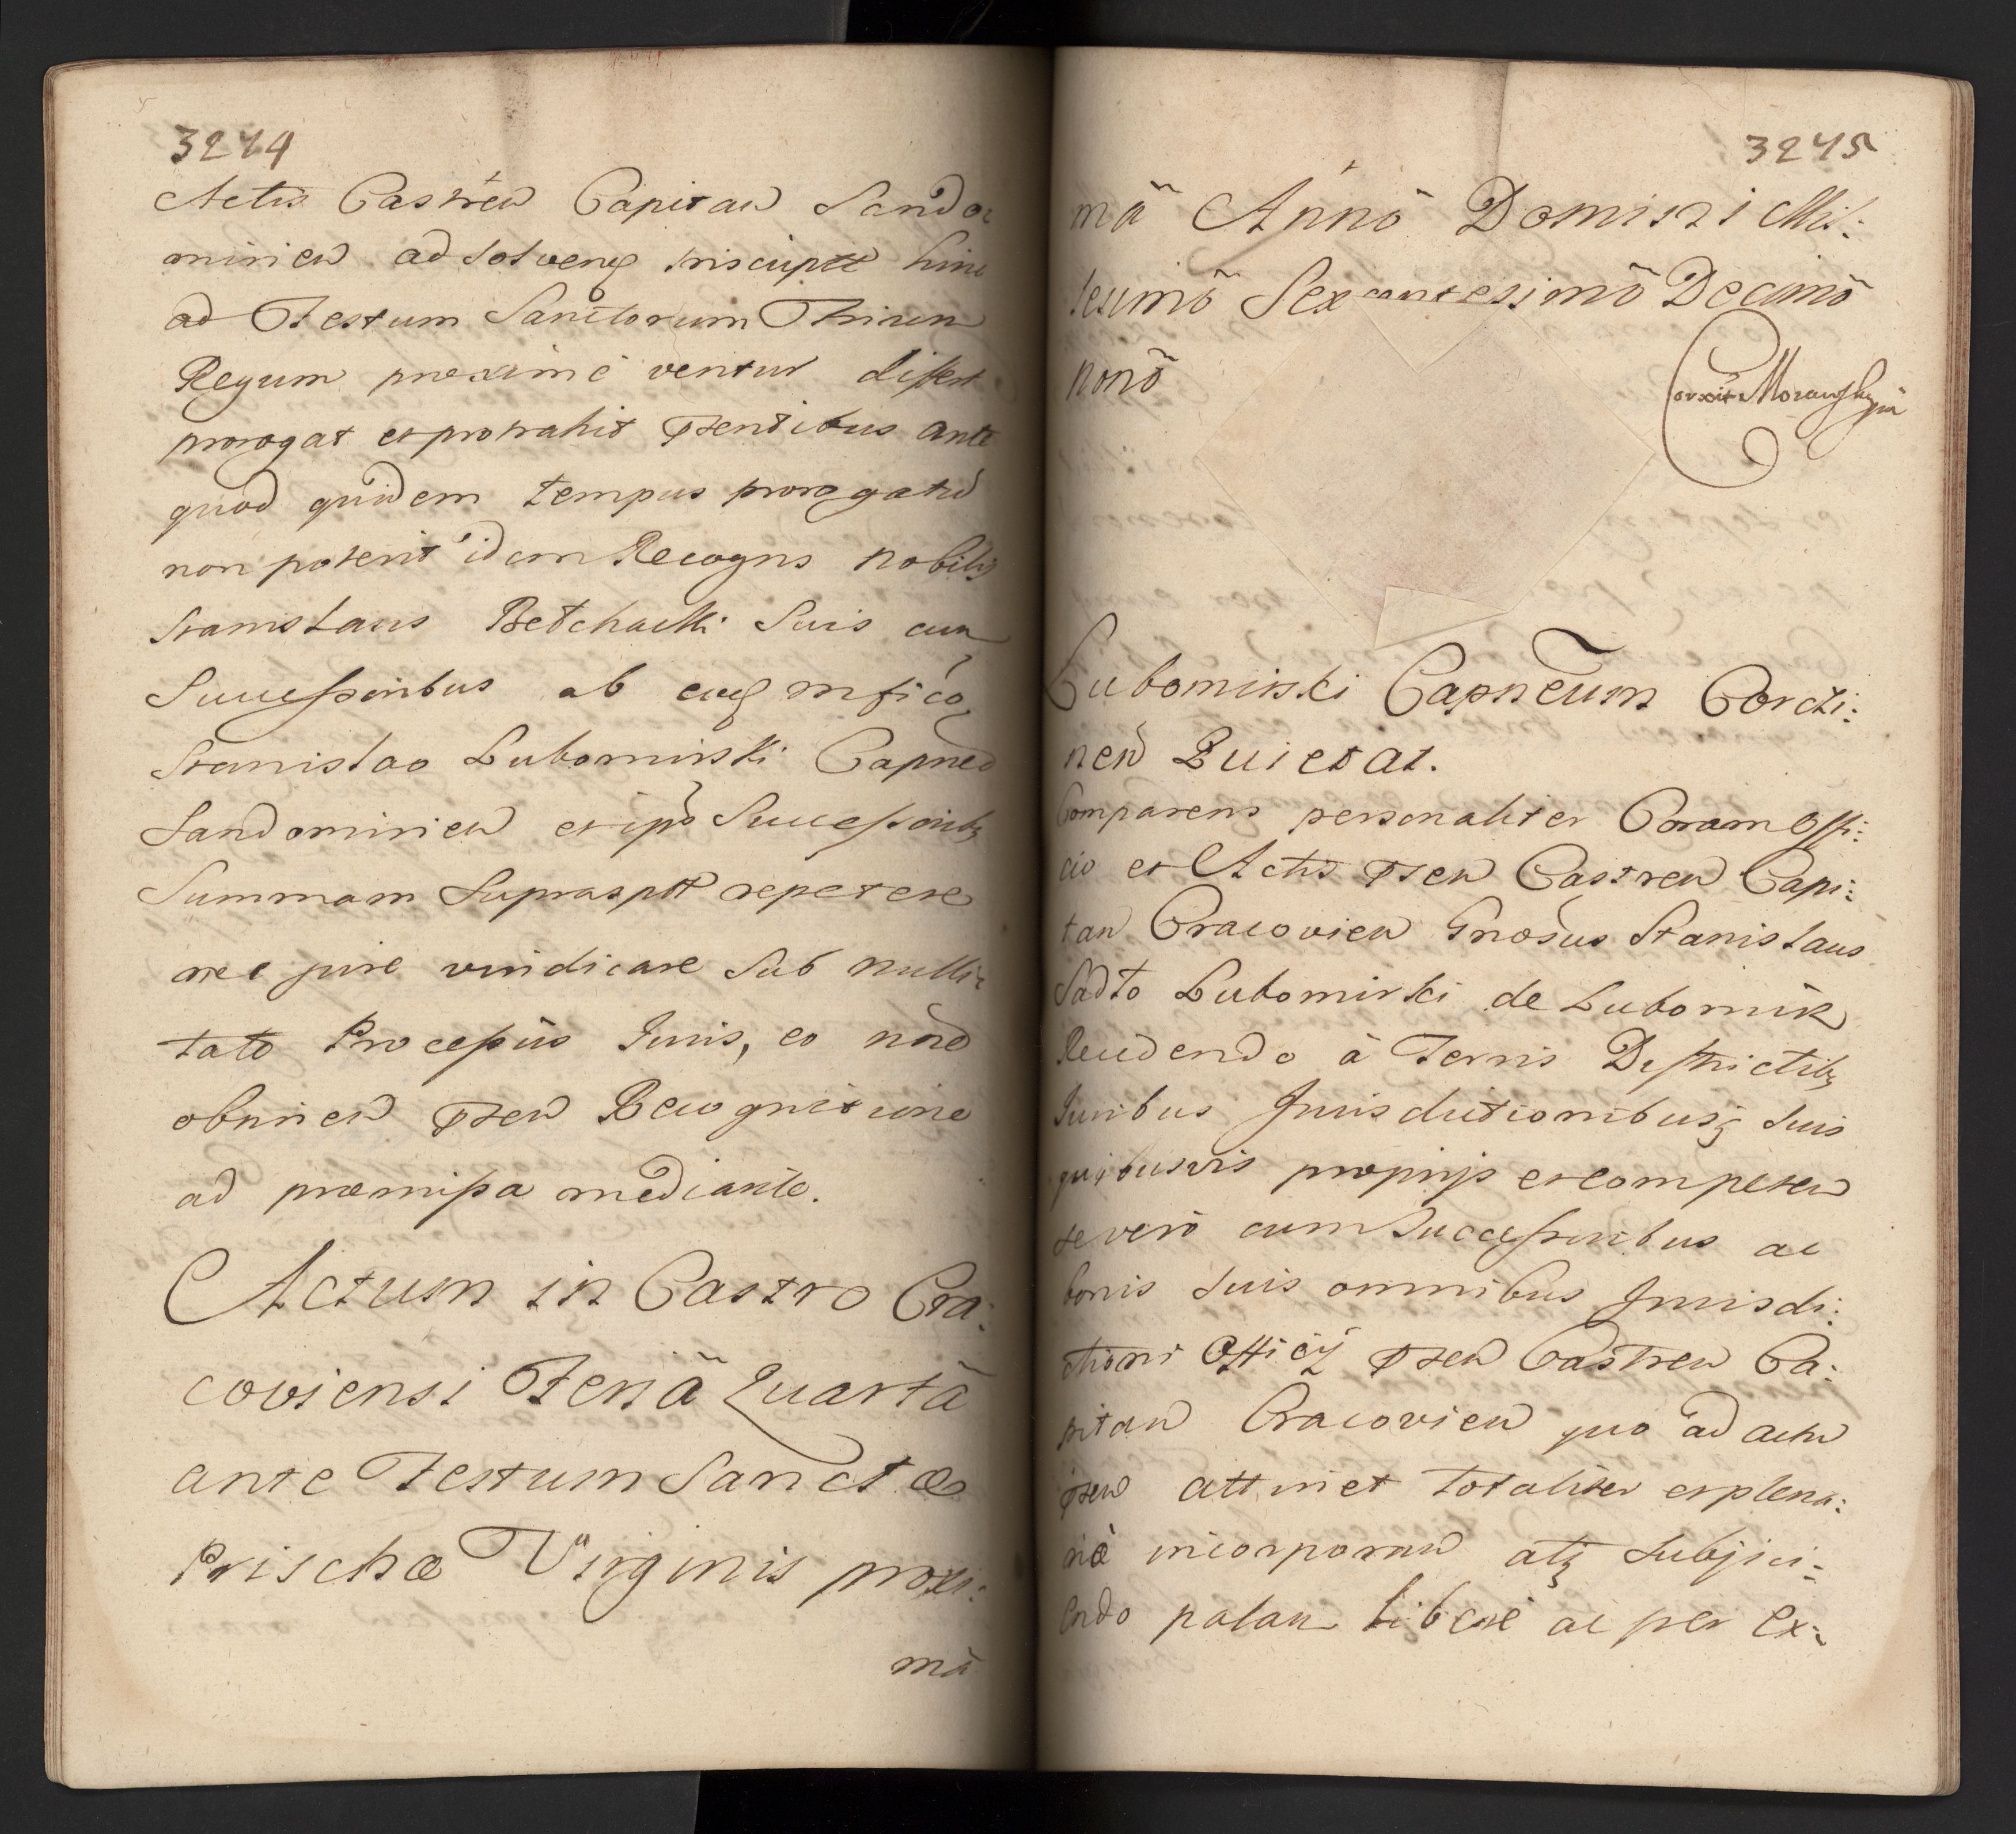 3244
Actis Castren Capitan Sando:
mirien ad solvend inscriptt hinc
ad Festum Sanctorum Trium
Regum proxime ventur differt
prorogat et protrahit psentibus ante
quod quidem tempus prorogatu
non poterit idem Recogns nobilis
Stanislaus Betchacki Suis cum
Successoribus ab eiusd mfico
Stanislao Lubomirski Capneo
Sandomirien et ipo Successoribq
Summam Suprasptt repetere
nec jure vindicare sub nulli:
tate Processus Iuris, eo noe
obunien psen Recognitione
ad præmissa mediante.
Actum in Castro Cra:
coviensi Feriâ Quartâ
ante Festum Sanctæ
Prischæ Virginis proxi:
mâ
3245
mâ Annô Domini Mil:
lesimô Sexcentesimô Decimô
nonô
Corxit Morawskyin
Lubomirski Capneum Corczi:
nen Quietat.
Comparens personaliter Coram Offi:
cio et Actis psen Castren Capi:
tan Cracovien Gnosus Stanislaus
Sadło Lubomirski de Lubomirz
Recedendo à Terris Districtibq
Iuribus Jurisdictionibusq suis
quibusvis proprijs et competen
se verò cum Successoribus ac
bonis suis omnibus Jurisdi:
ctioni Officij psen Castren Ca:
pitan Cracovien quo ad actu
psen attinet totaliter et plena:
riè incorporand atq subjici:
endo palam liberè ac per ex: